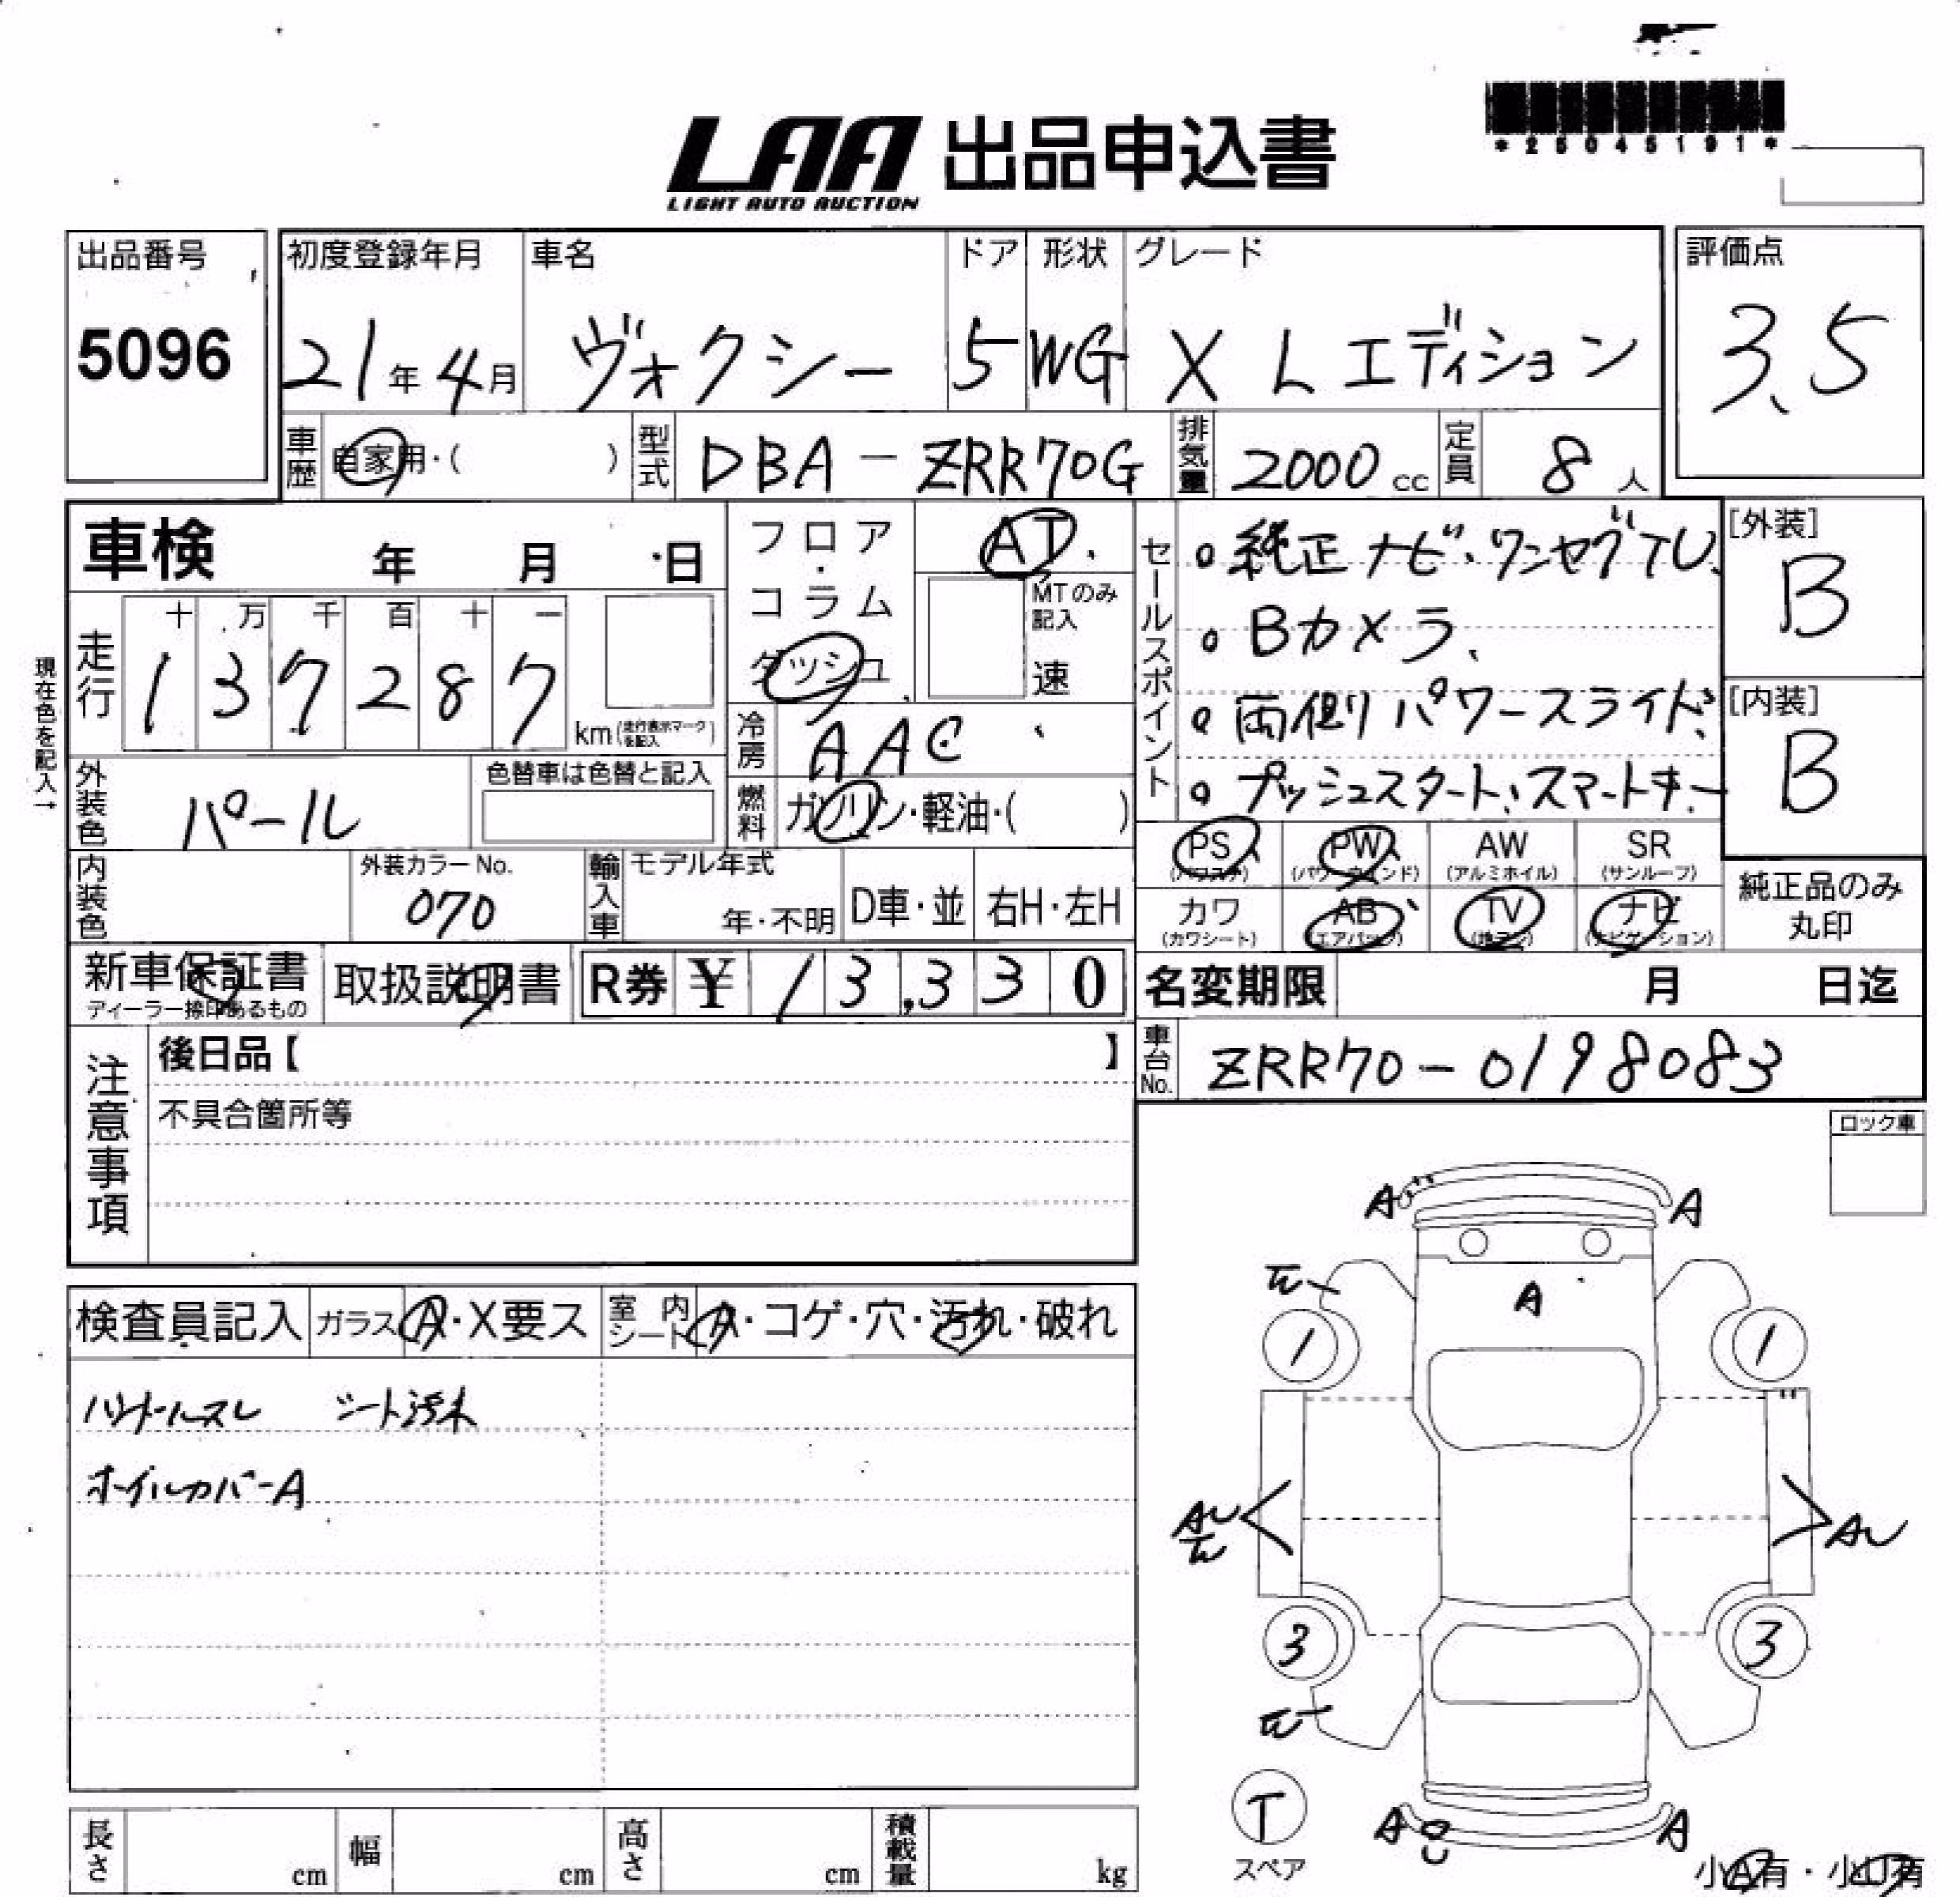 *25045191*
LAA 出品申込書
LIGHT AUTO AUCTION
出品番号
5096
初度登録年月
21年4月
車名
ヴォクシー
ドア
5
形状
WG
グレード
X Lエディション
評価点
3.5
車歴
自家用・( )
型式
DBA-ZRR70G
排気量
2000cc
定員
8人
車検 年 月 日
フロア・コラム
ダッシュ
AT
MTのみ記入
速
セールスポイント
。純正ナビ・ワンセグTV、
。Bカメラ、
。両側パワースライド、
。プッシュスタート、スマートキー
[外装]
B
[内装]
B
現在色を記入→
走行
十 万 千 百 十 一
1 3 7 2 8 7
km(走行表示マークを記入)
冷房
AAC
外装色
パール
色替車は色替と記入
燃料
ガソリン・軽油・( )
PS
(パワステ)
PW
(パワーウインド)
AW
(アルミホイル)
SR
(サンルーフ)
カワ
(カワシート)
AB
(エアバッグ)
TV
ナビ
(ナビゲーション)
純正品のみ
丸印
内装色
外装カラーNo.
070
輸入車
モデル年式
年・不明
D車・並
右H・左H
新車保証書
ディーラー捺印あるもの
取扱説明書
R券 ¥ 13,330
名変期限 月 日迄
車台No.
ZRR70-0198083
注意事項
後日品【 】
不具合箇所等
ロック車
検査員記入
ガラス
A・X要ス
室内シート
A・コゲ・穴・汚れ・破れ
ハンドルスレ シート汚れ
ホイルカバーA
A A
A
1 1
3 3
A A
T
スペア
小A有・小U有
長さ cm
幅 cm
高さ cm
積載量 kg